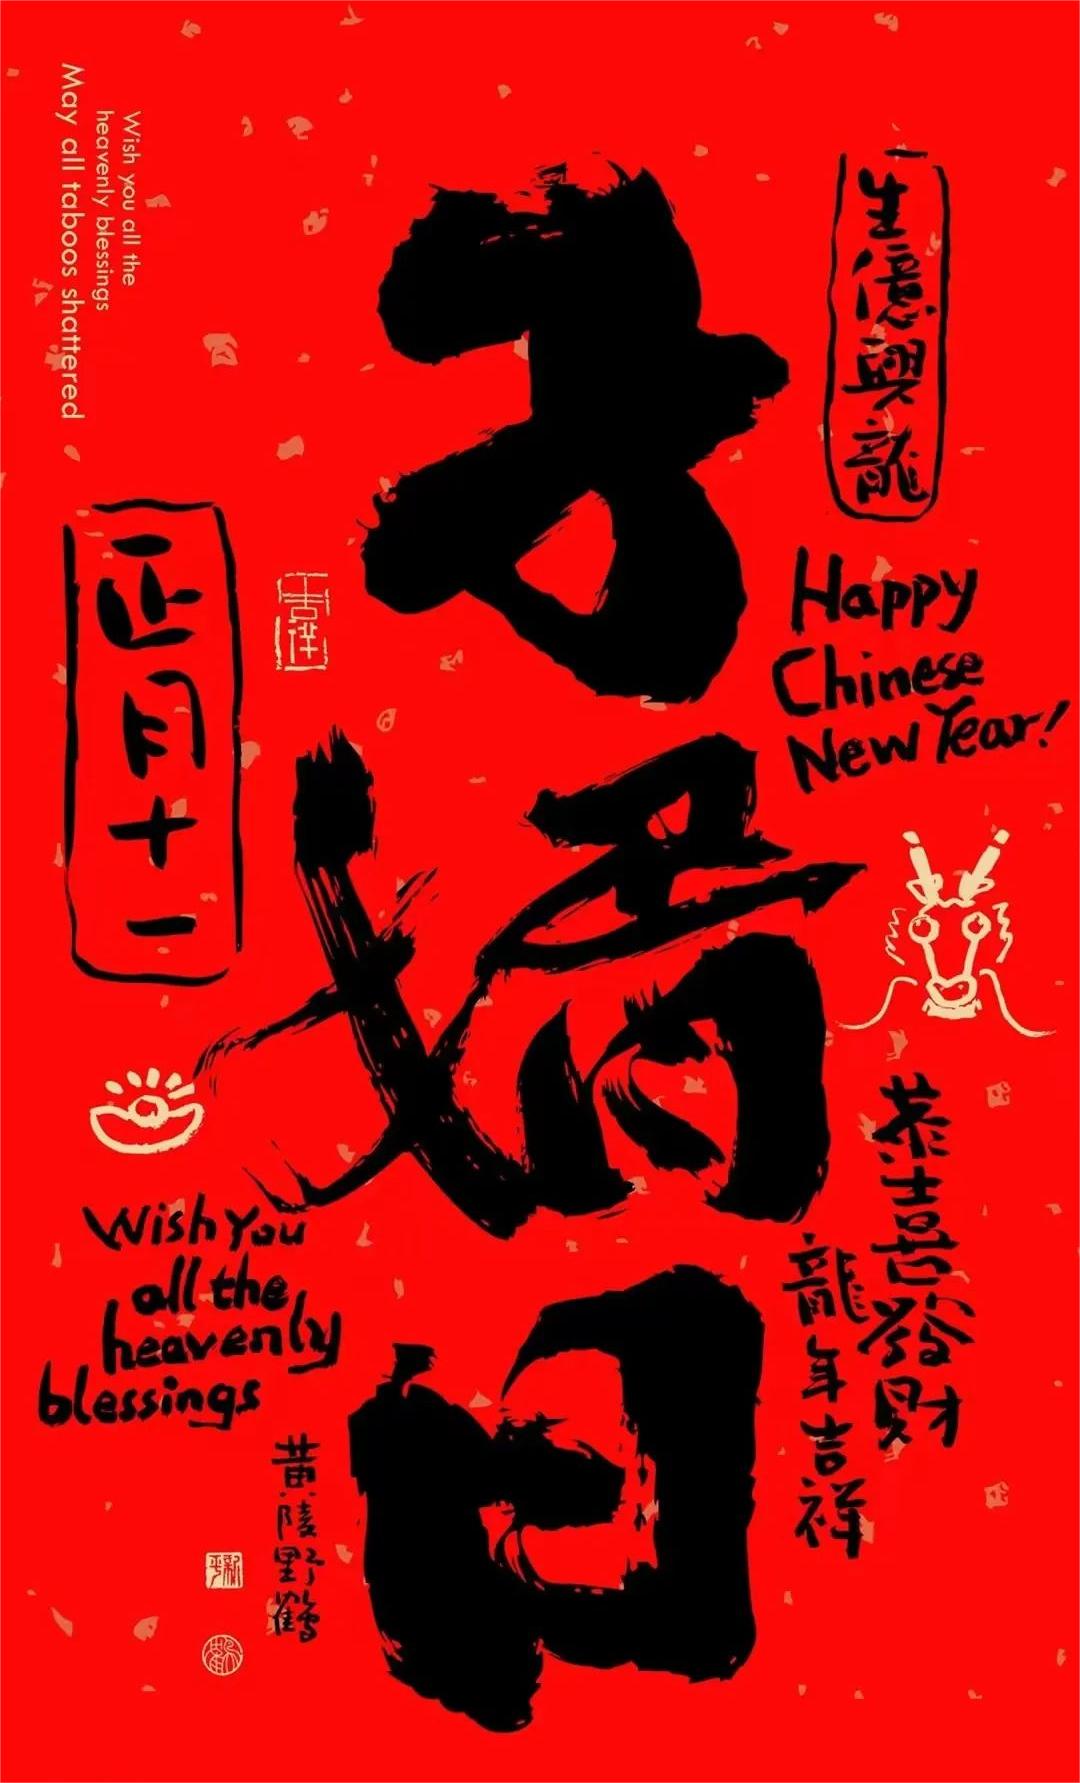 子婿日
生億興龍
Happy
Chinese
New Year!
恭喜發财
龍年吉祥
Wish you all the
heavenly blessings
May all taboos shattered
正月十一
Wish You
all the
heavenly
blessings
黄陵野鶴